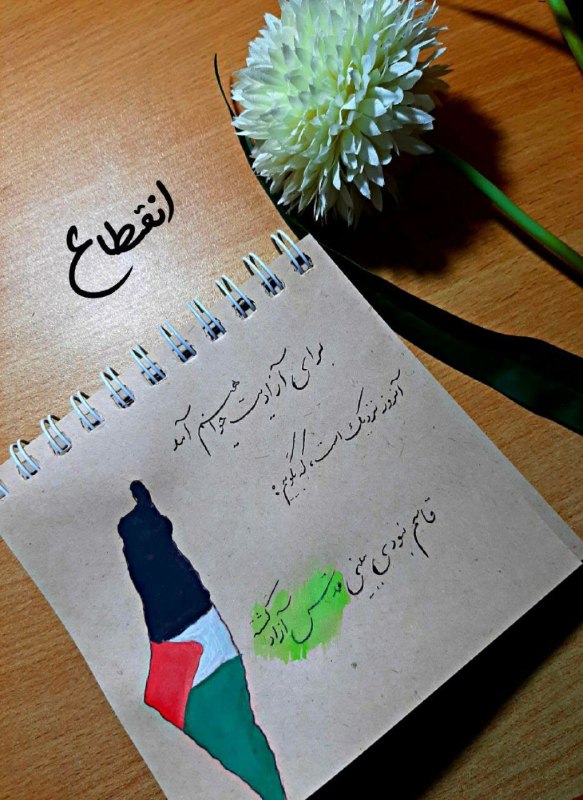 انقطاع
برای آزادیت خواهیم آمد
آنروز نزدیک است، که بگوییم:
قاسم نبودی ببینی قدس آزاد گشته